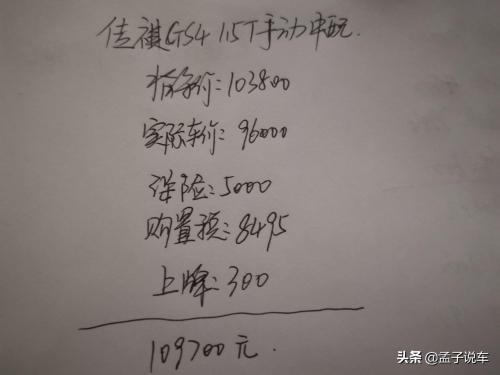 传祺GS4 1.5T手动中配
指导价:103800
实际车价:96000
保险:5000
购置税:8495
上牌:300
109700元.
头条 @孟子说车